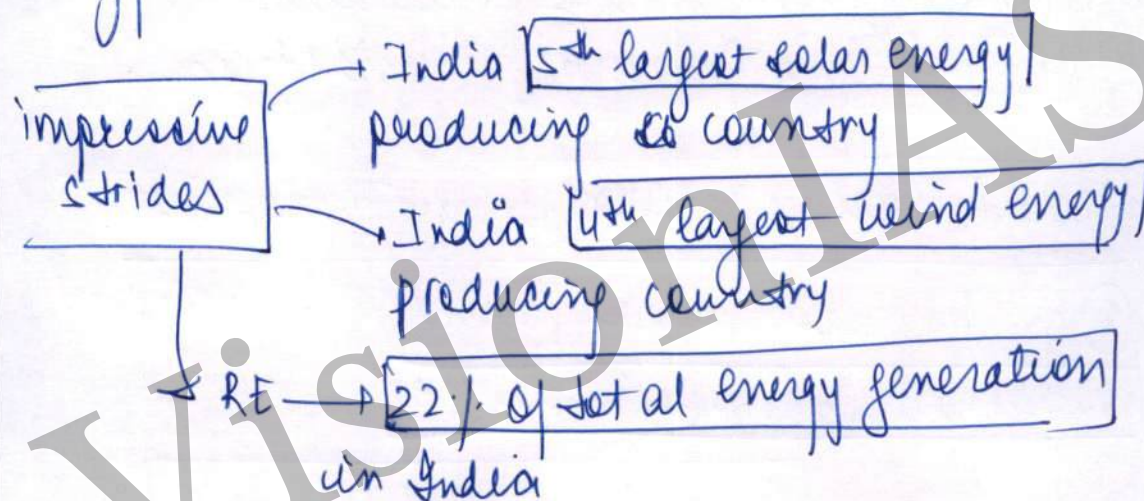 impressive
strides
India 5th largest solar energy
producing country
India 4th largest wind energy
producing country
RE → 22% of total energy generation
in India
VisionIAS